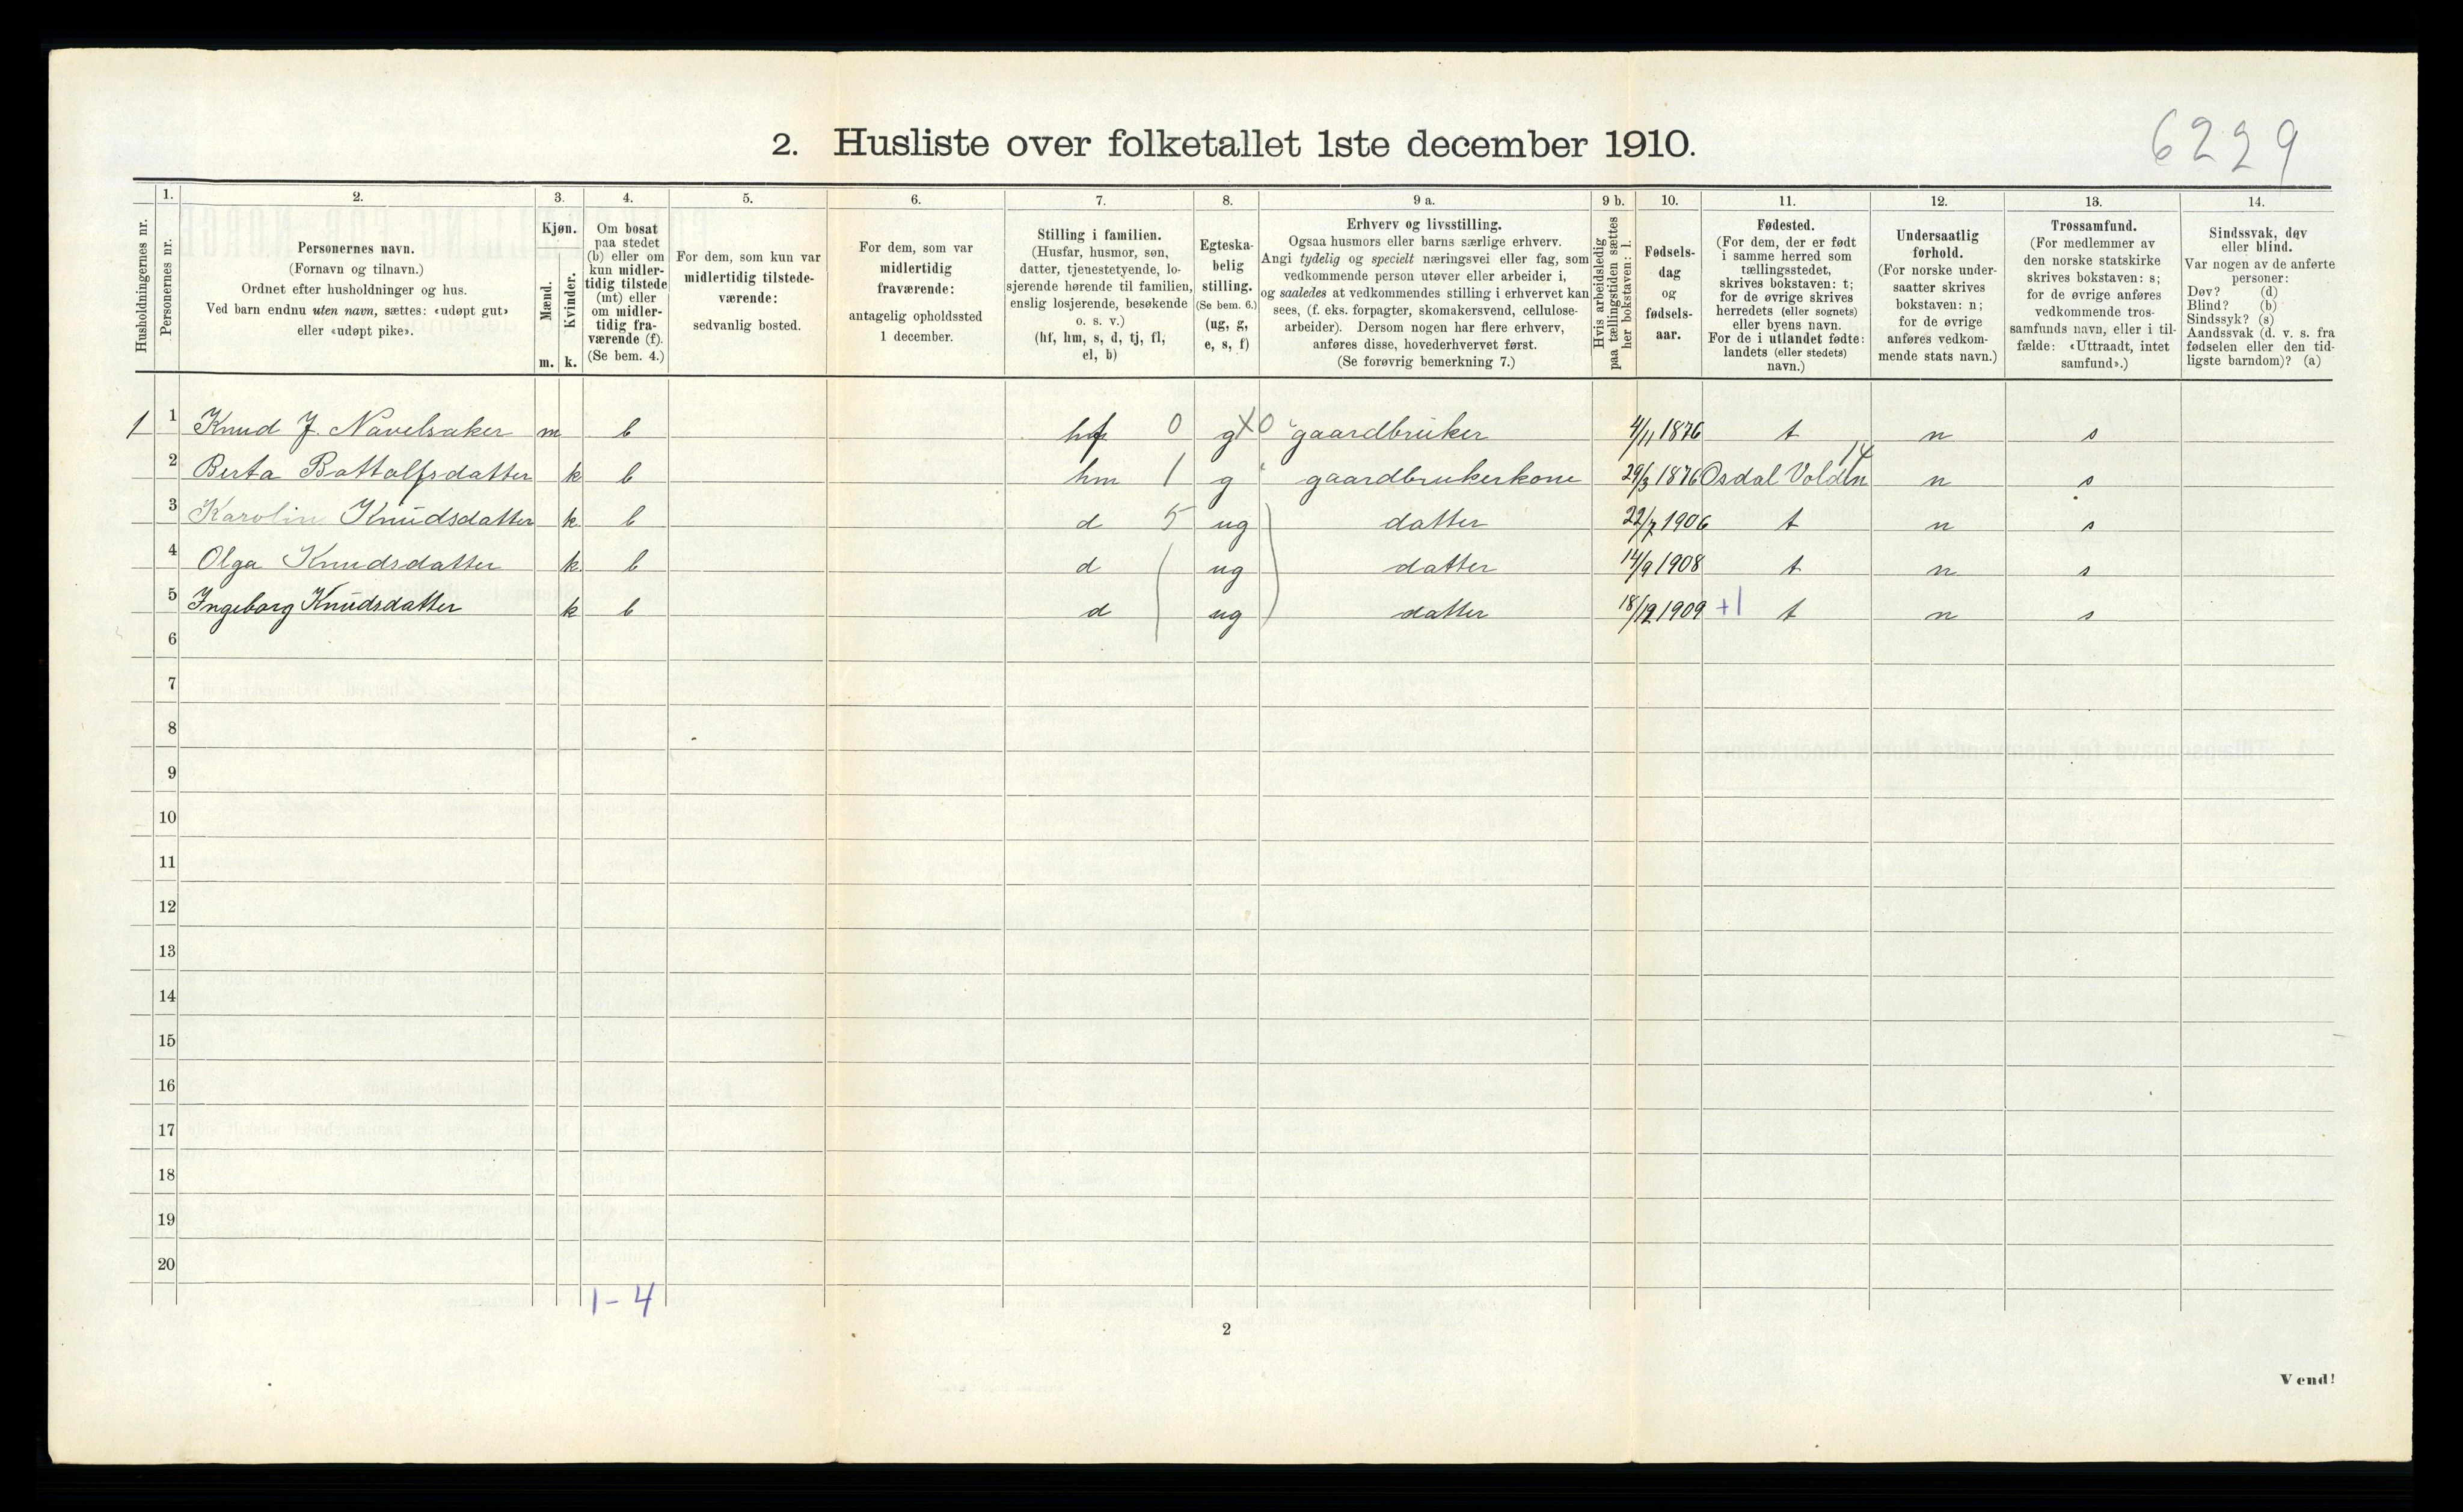 6229
2. Husliste over folketallet 1ste december 1910.
Husholdningernes nr.
1.
Personernes nr.
2.
Personernes navn.
(Fornavn og tilnavn.)
Ordnet efter husholdninger og hus.
Ved barn endnu uten navn, sættes: «udøpt gut»
eller «udøpt pike».
3.
Kjøn.
Mænd.
Kvinder.
m. k.
4.
Om bosat
paa stedet
(b) eller om
kun midler-
tidig tilstede
(mt) eller
om midler-
tidig fra-
værende (f).
(Se bem. 4.)
5.
For dem, som kun var
midlertidig tilstede-
værende:
sedvanlig bosted.
6.
For dem, som var
midlertidig
fraværende:
antagelig opholdssted
1 december.
7.
Stilling i familien.
(Husfar, husmor, søn,
datter, tjenestetyende, lo-
sjerende hørende til familien,
enslig losjerende, besøkende
o. s. v.)
(hf, hm, s, d, tj, fl,
el, b)
8.
Egteska-
belig
stilling.
(Se bem. 6.)
(ug, g,
e, s, f)
9 a.
Erhverv og livsstilling.
Ogsaa husmors eller barns særlige erhverv.
Angi tydelig og specielt næringsvei eller fag, som
vedkommende person utøver eller arbeider i,
og saaledes at vedkommendes stilling i erhvervet kan
sees, (f. eks. forpagter, skomakersvend, cellulose-
arbeider). Dersom nogen har flere erhverv,
anføres disse, hovederhvervet først.
(Se forøvrig bemerkning 7.)
9 b.
Hvis arbeidsledig
paa tællingstiden sættes
her bokstaven: l.
10.
Fødsels-
dag
og
fødsels-
aar.
11.
Fødested.
(For dem, der er født
i samme herred som
tællingsstedet,
skrives bokstaven: t;
for de øvrige skrives
herredets (eller sognets)
eller byens navn.
For de i utlandet fødte:
landets (eller stedets)
navn.)
12.
Undersaatlig
forhold.
(For norske under-
saatter skrives
bokstaven: n;
for de øvrige
anføres vedkom-
mende stats navn.)
13.
Trossamfund.
(For medlemmer av
den norske statskirke
skrives bokstaven: s;
for de øvrige anføres
vedkommende tros-
samfunds navn, eller i til-
fælde: «Uttraadt, intet
samfund».)
14.
Sindssvak, døv
eller blind.
Var nogen av de anførte
personer:
Døv? (d)
Blind? (b)
Sindssyk? (s)
Aandssvak (d. v. s. fra
fødselen eller den tid-
ligste barndom)? (a)
1 1 Knud J. Navelsaker m b hf 0 g X0 gaardbruker 4/11 1876 t n s
2 Berta Bottolfsdatter k b hm 1 g gaardbrukerkone 29/3 1876 Osdal Volden 14 n s
3 Karolin Knudsdatter k b d 5 ug datter 22/7 1906 t n s
4 Olga Knudsdatter k b d ug datter 14/9 1908 t n s
5 Ingeborg Knudsdatter k b d ug datter 18/12 1909 +1 t n s
6
7
8
9
10
11
12
13
14
15
16
17
18
19
20
1-4
2
Vend!